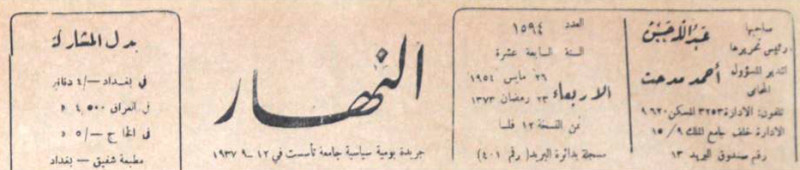 صاحبها
رئيس تحريرها
عبد الله حسن
المدير المسؤول
المحامي
أحمد مدحت
تلفون: الادارة ٣٢٥٣ المسكن ٩٦٢٠
الادارة خلف جامع الملك ١٥/٩
رقم صندوق البريد ١٣
العدد ١٥٩٤
السنة السابعة عشرة
٢٦ مايس ١٩٥٤
الاربعاء ٢٣ رمضان ١٣٧٣
ثمن النسخة ١٢ فلسا
مسجلة بدائرة البريد (رقم ٤٠١)
النهار
جريدة يومية سياسية جامعة تأسست في ١٢-٩-١٩٣٧
بدل المشاركة
في بغداد -/٤ دنانير
في العراق ٤,٥٠٠ د
في الخارج -/٥ د
مطبعة شفيق - بغداد